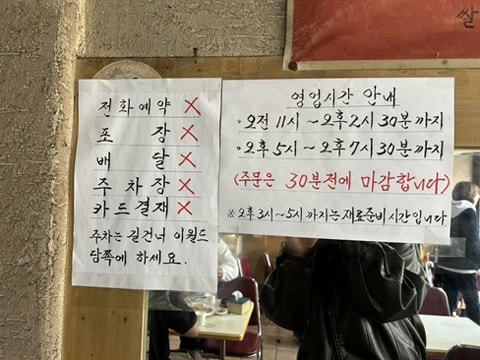 전화예약 X
포 장 X
배 달 X
주차장 X
카드결재 X
주차는 길건너 이월드
담쪽에 하세요.
영업시간 안내
• 오전 11시 ~ 오후 2시 30분 까지
• 오후 5시 ~ 오후 7시 30분 까지
(주문은 30분전에 마감합니다)
※ 오후 3시~5시 까지는 재료준비시간입니다
쌀